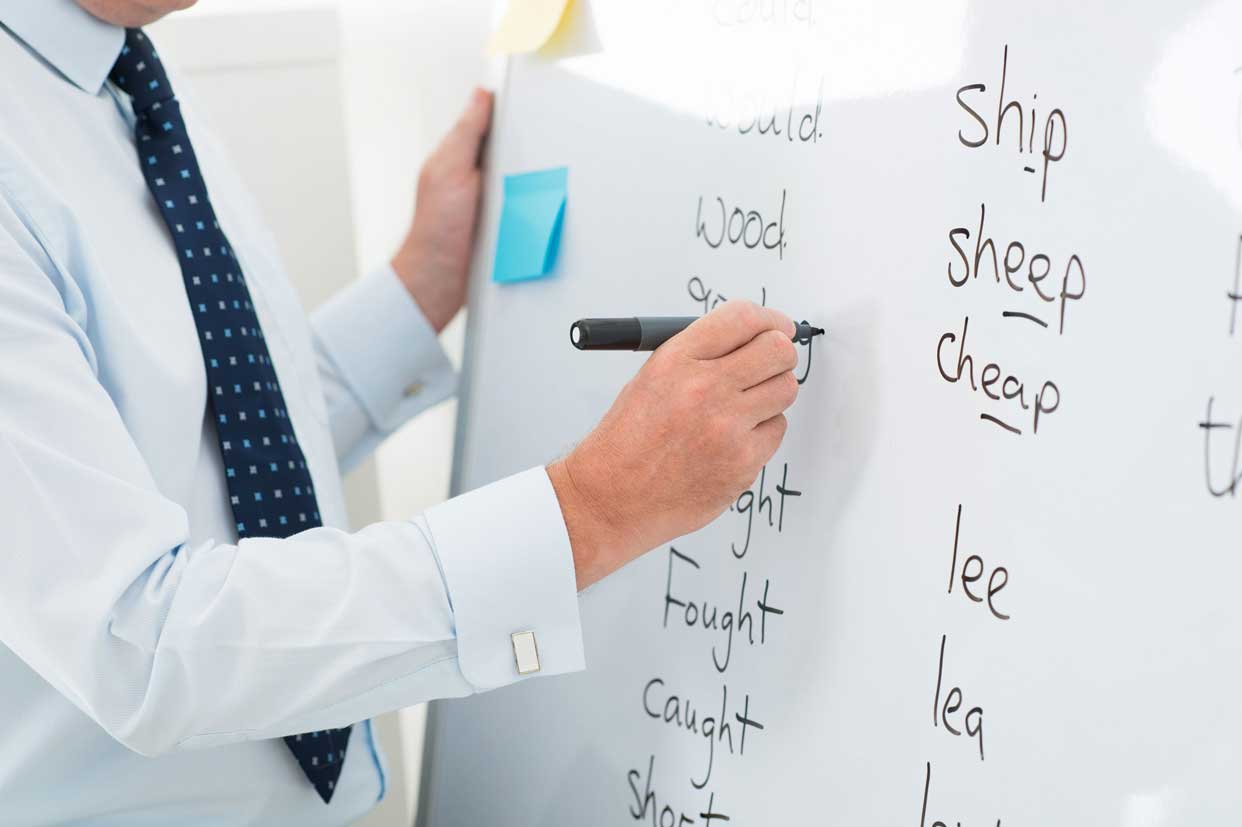 could.
would.
wood.
Fought
Caught
short
ship
sheep
cheap
lee
lea